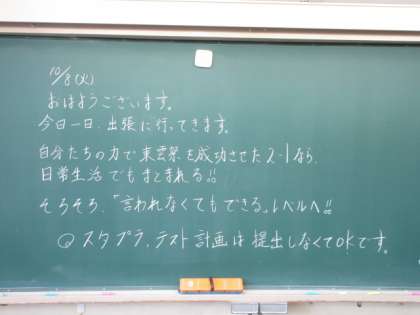 10/8(火)
おはようございます。
今日一日、出張に行ってきます。
自分たちの力で東雲祭を成功させた2-1なら、
日常生活でもまとまれる!!
そろそろ、「言われなくてもできる」レベルへ!!
◎スタプラ、テスト計画は提出しなくてOKです。